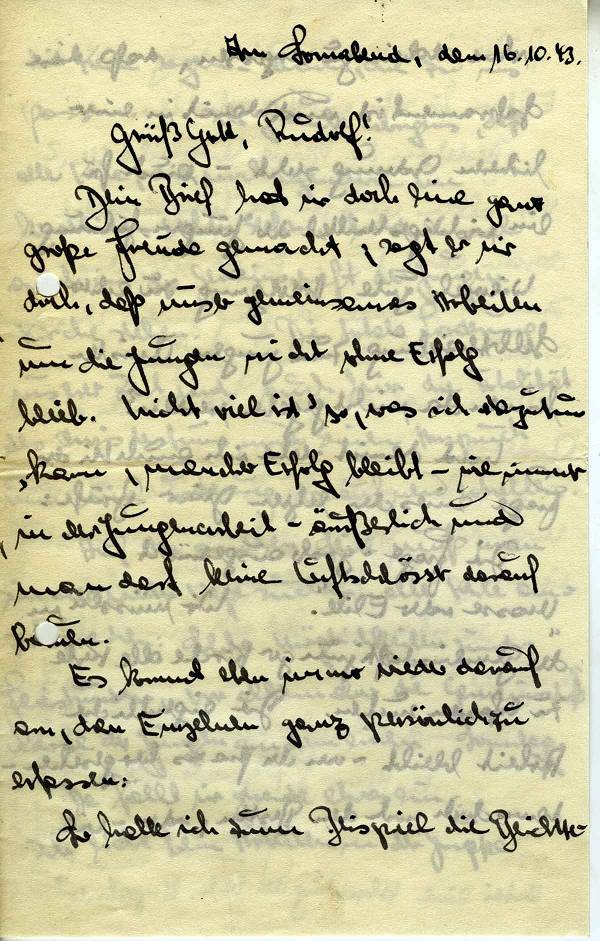 Am Sonnabend, dem 16.10.43.
Grüß Gott, Rudolf!
Dein Brief hat mir doch eine ganz
große Freude gemacht, sagt er mir
doch, daß unser gemeinsames Arbeiten
um die Jungen nicht ohne Erfolg
blieb. Nicht viel ist's, was ich dazutun
kann, mancher Erfolg bleibt - wie immer
in der Jungenarbeit - äußerlich und
man darf keine Luftschlösser darauf
bauen.
Es kommt eben immer wieder darauf
an, den Einzelnen ganz persönlich zu
erfassen:
So halte ich zum Beispiel die